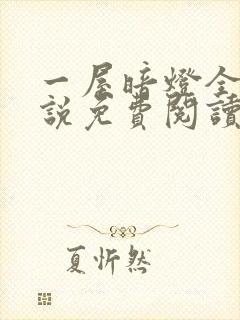 一屋暗燈全
説免費閱讀
夏忻然